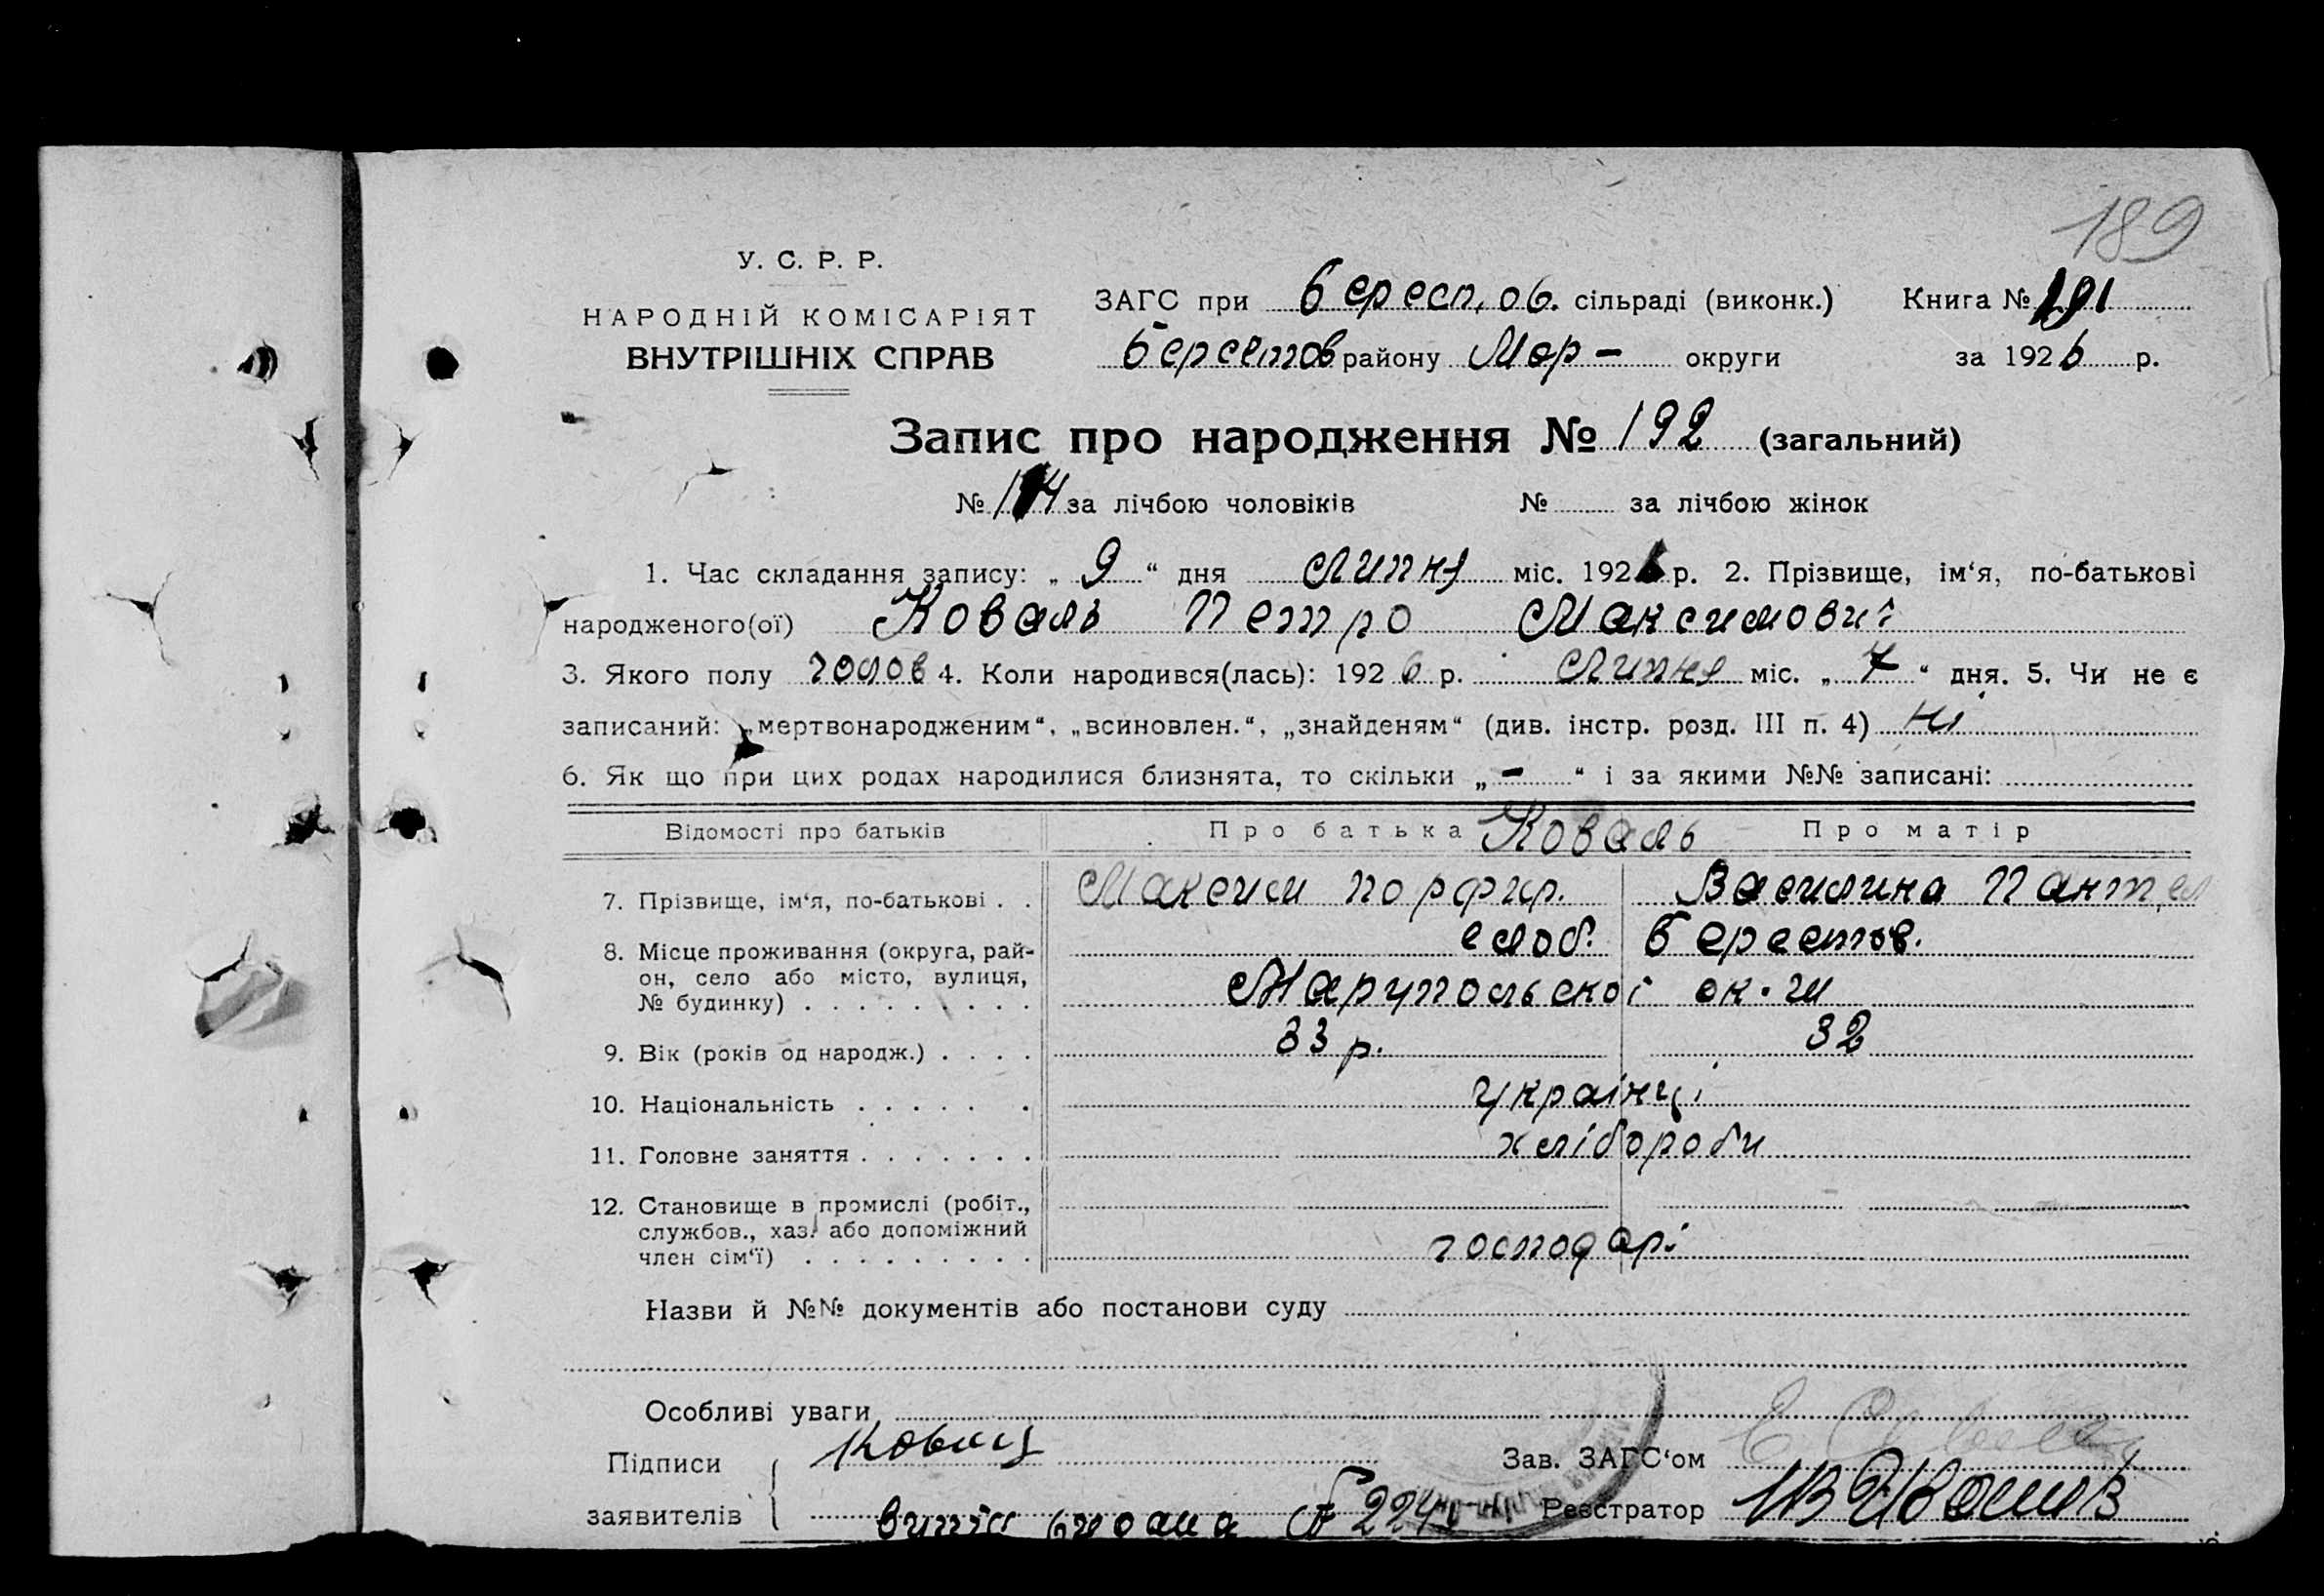 189
У. С. Р. Р.
НАРОДНІЙ КОМІСАРІЯТ
ВНУТРІШНІХ СПРАВ
ЗАГС при Берест. ов. сільраді (виконк.) Книга № 191
Берестов району Мар – округи за 1926 р.
Запис про народження № 192 (загальний)
№ за лічбою чоловіків № за лічбою жінок
1. Час складання запису: „ 9 “ дня Липня міс. 1926 р. 2. Прізвище, ім‘я, по-батькові
народженого(ої) Коваль Петро Максимович
3. Якого полу чолов 4. Коли народився(лась): 1926 р. Липня міс. „ 7 “ дня. 5. Чи не є
записаний: „мертвонародженим“, „всиновлен.“, „знайденям“ (див. інстр. розд. III п. 4) ні
6. Як що при цих родах народилися близнята, то скільки „ – “ і за якими №№ записані:
Відомості про батьків Про батька Коваль Про матір
7. Прізвище, ім‘я, по-батькові . . Максим Порфир. Василина Пантел
8. Місце проживання (округа, рай- слоб. Берестов.
он, село або місто, вулиця,
№ будинку) . . . . . . . . . Маріупольської ок·ги
9. Вік (років од народж.) . . . . 33 р. 32
10. Національність . . . . . . українці
11. Головне заняття . . . . . . . хлібороби
12. Становище в промислі (робіт.,
службов., хаз. або допоміжний
член сім‘ї) . . . . . . . . . господарі
Назви й №№ документів або постанови суду
Особливі уваги
Підписи Зав. ЗАГС‘ом
заявителів Реєстратор